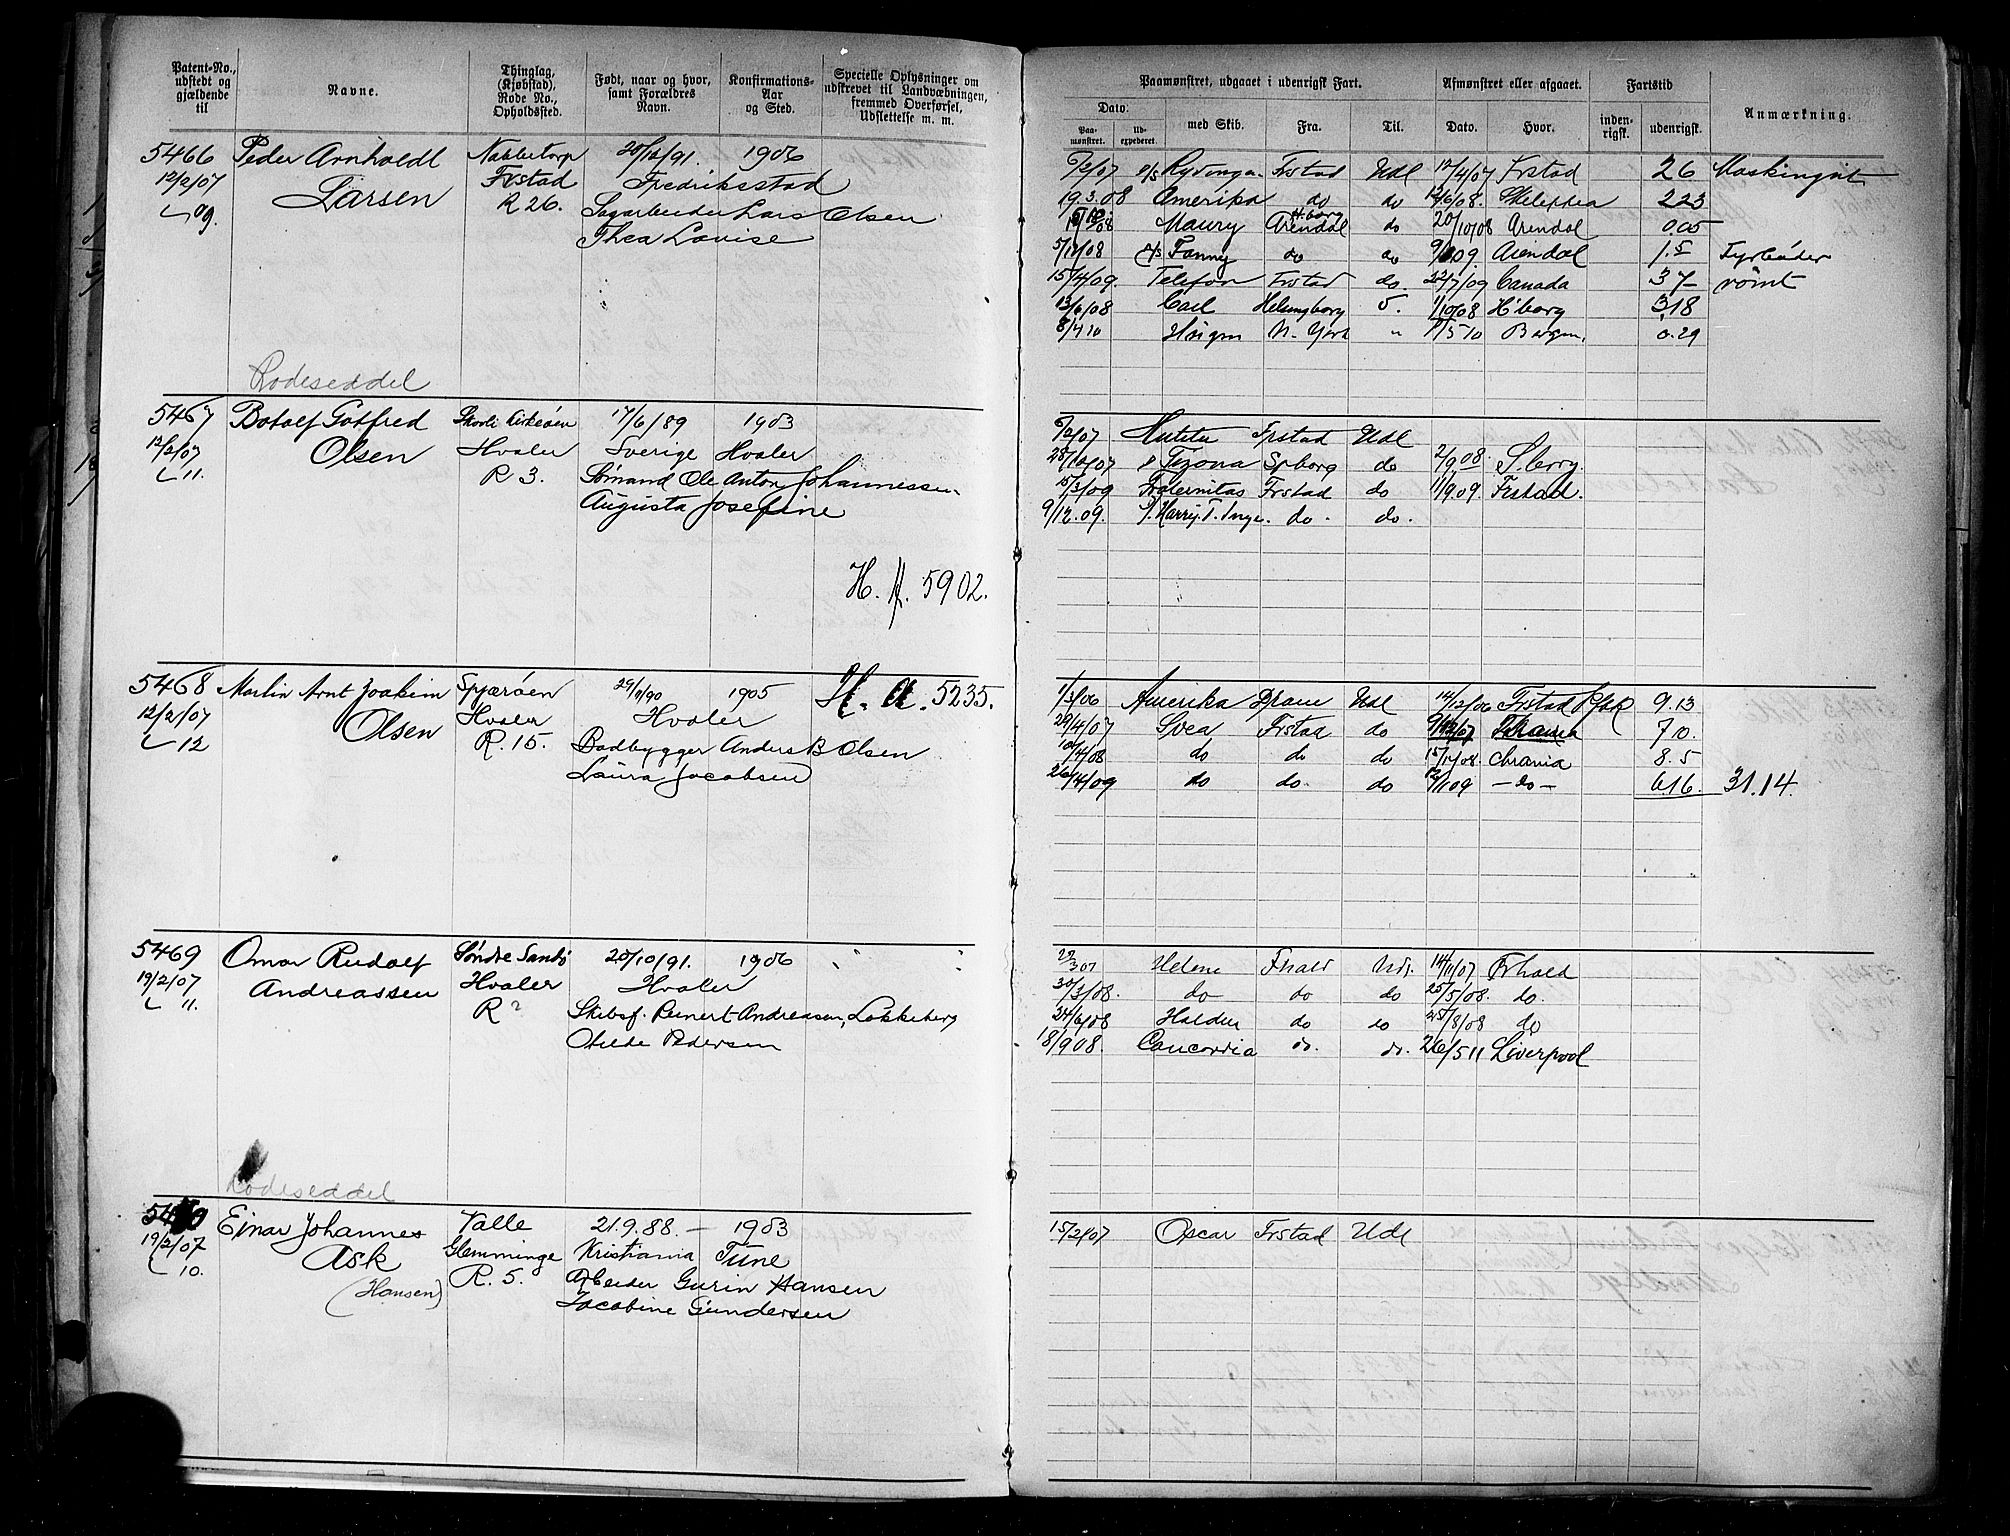 Patent-No., udstedt og gjældende til
Navne.
Thinglag, (Kjøbstad), Rode No., Opholdssted.
Født, naar og hvor, samt Forældres Navn.
Konfirmations-Aar og Sted.
Specielle Oplysninger om udskrevet til Landvæbningen, fremmed Overførsel, Udslettelse m. m.
5466 Peder Arnholdt Nabbetorp 20/12/91. 1906
12/2/07 Larsen Frstad Fredriksstad
09. R 26. Sagarbeider Lars Olsen
Thea Lovise
Rodeseddel
5467 Botolf Gotfred Skovli Kirkeøen 17/6/89 1903
12/2/07 Olsen Hvaler Sverige Hvaler
11. R 3. Sømand Ole Anton Johannessen
Augusta Josefine
H. A. 5902.
5468 Martin Arnt Joakim Spjærøen 29/11/90 1905 H. a. 5235.
12/2/07 Olsen Hvaler Hvaler
12 R. 15. Baadbygger Anders B Olsen
Laura Jacobsen
5469 Omar Rudolf Søndre Sandø 20/10/91. 1906
19/2/07 Andreassen Hvaler Hvaler
11. R ? Skibsf. Reinert Andreasen, Løkkeberg
Otilde Pedersen
Rodeseddel
5470 Einar Johannes Valle 21.9.88. — 1903
19/2/07 Ask Glemminge Kristiania Tune
10. (Hansen) R. 5. Arbeider Gurin Hansen
Jacobine Gundersen
Paamønstret, udgaaet i udenrigsk Fart.
Afmønstret eller afgaaet.
Fartstid
Anmærkning.
Dato.
Paa-mønstret.
Ud-expederet.
med Skib.
Fra.
Til.
Dato.
Hvor.
inden-rigsk.
udenrigsk.
6/2/07 D/S Rydingen Frstad Udl 12/4/07 Frstad 26 Maskingut
19.3.08 Amerika do do 12/6/08. Skeleftea 2.23
Maury Arendal do 20/10/08 Arendal 0.05
5/11/08 D/S Fanny do do 09 Arendal 1.5 Fyrbøder
15/4/09. Telefon Frstad do. 22/7/09 Canada 37 rømt
13/6/08 Carl Helsingborg 1/10/08 H'borg 3.18
8/4 10 N. York " 7/5 10 Bergen. 0.29
6/2/07 Frstad Udl
28/10/07 Tizona Spborg do 2/9.08. S.berg.
15/3/09 Fraternitas Frstad do 1/9.09. Frstad.
9/12.09. Harry. T. Inge. do. do.
1/3/06 Amerika Dram Udl 14/12/06 Frstad 9.13
29/4/07 Svea Frstad do 7.0.
10/4/08 do do do 15/12/08. Chrania 8.5
26/4/09 do do. do 12/11 09 — do — 6.16. 31.14.
22/3 07 Helene Fhald Udl. 14/11/07 Frhald
30/3/08. do do do 25/5/08. do.
24/6/08 Halden do do 25/8/08 do
18/9 08. Concordia do. do. 26/5 11 Liverpool
15/2/07 Oscar Frstad Udl